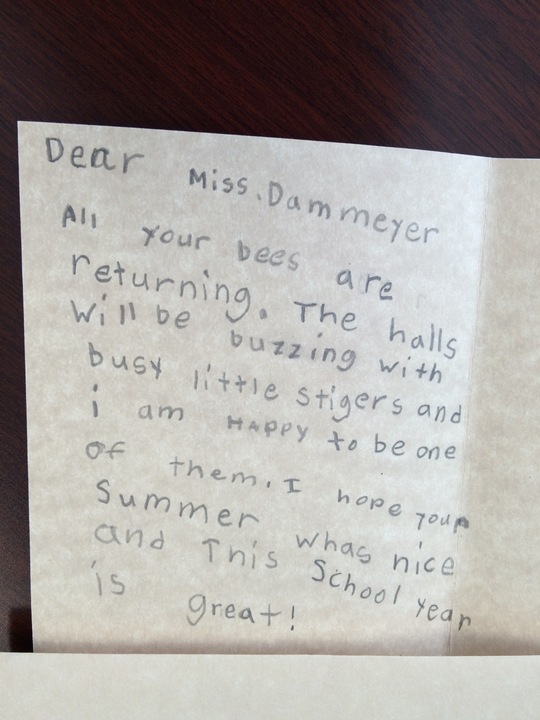 Dear Miss. Dammeyer
All your bees are
returning. The halls
will be buzzing with
busy little stigers and
i am HAPPY to be one
of them. I hope your
Summer whas nice
and This School year
is great!